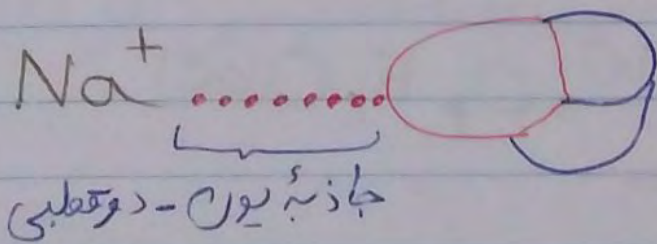 Na⁺
جاذبهٔ یون - دوقطبی